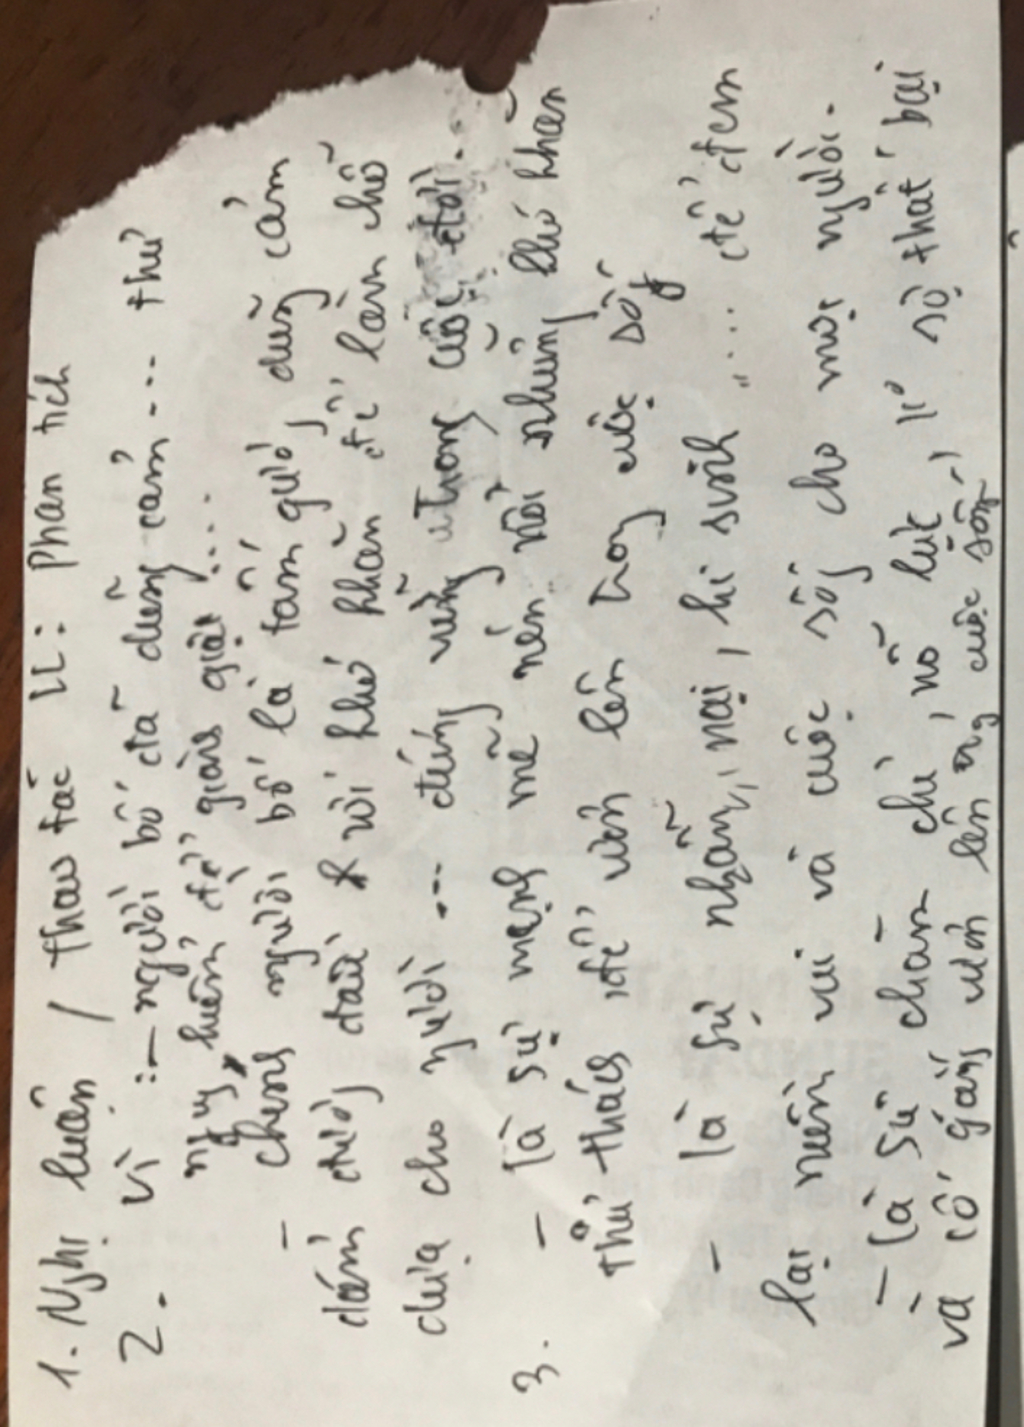 1. Nghị luận / thao tác LL: Phân tích
2. Vì :- người bố đã dũng cảm --- thư
nguy hiểm để giành giật ....
- chính người bố là tấm gươ, dũng cảm
dám đươg đầu với khó khăn để làm chỗ
dựa cho người --- đứng vững trong cuộc đời..
3. - là sự mạnh mẽ nén nỗi những khó khăn
thử thách để vươn lên trog cuộc sốg
- là sự nhẫn nại, hi sinh .... để đem
lại niềm vui và cuộc sốg cho mọi người.
- là sự chăm chỉ, nỗ lực, ko sợ thất bại
và cố gắng vươn lên trog cuộc sống